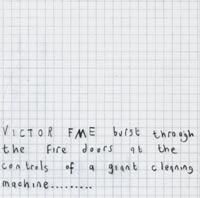 VICTOR FME burst through
the fire doors at the
controls of a giant cleaning
machine.........